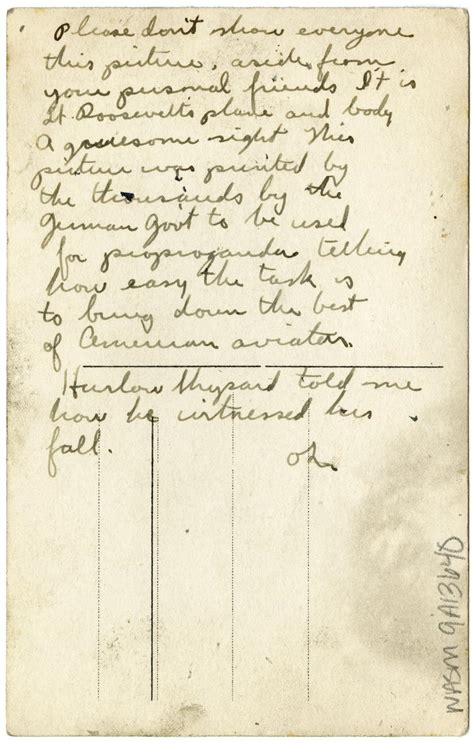 Please don't show everyone
this picture, aside from
your personal friends It is
Lt. Roosevelts plane and body
A gruesome sight This
picture was printed by
the thousands by the
German Govt to be used
for proproganda telling
how easy the task is
to bring down the best
of American aviators.
Harlow told me
how he witnessed his
fall.
NASM 9A13640